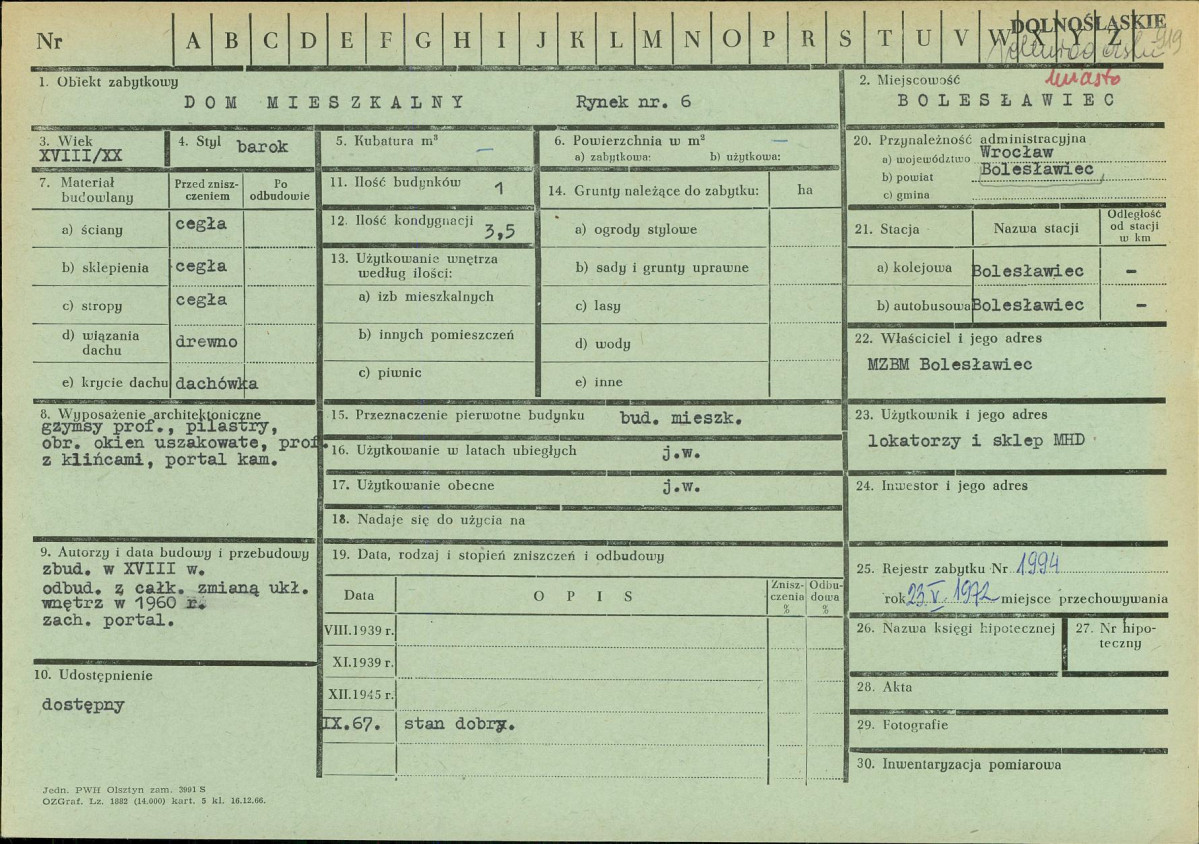 Nr A B C D E F G H I J K L M N O P R S T U V W X Y Z
DOLNOŚLĄSKIE
919
1. Obiekt zabytkowy
DOM MIESZKALNY Rynek nr. 6
2. Miejscowość
miasto
BOLESŁAWIEC
3. Wiek
XVIII/XX
4. Styl barok
5. Kubatura m³ —
6. Powierzchnia w m² —
a) zabytkowa: b) użytkowa:
20. Przynależność administracyjna
a) województwo Wrocław
b) powiat Bolesławiec
c) gmina
7. Materiał budowlany
Przed zniszczeniem
Po odbudowie
a) ściany cegła
b) sklepienia cegła
c) stropy cegła
d) wiązania dachu drewno
e) krycie dachu dachówka
11. Ilość budynków 1
12. Ilość kondygnacji 3,5
13. Użytkowanie wnętrza
według ilości:
a) izb mieszkalnych
b) innych pomieszczeń
c) piwnic
14. Grunty należące do zabytku: ha
a) ogrody stylowe
b) sady i grunty uprawne
c) lasy
d) wody
e) inne
21. Stacja Nazwa stacji
Odległość
od stacji
w km
a) kolejowa Bolesławiec –
b) autobusowa Bolesławiec –
22. Właściciel i jego adres
MZBM Bolesławiec
8. Wyposażenie architektoniczne
gzymsy prof., pilastry,
obr. okien uszakowate, prof.
z klińcami, portal kam.
15. Przeznaczenie pierwotne budynku bud. mieszk.
16. Użytkowanie w latach ubiegłych j.w.
17. Użytkowanie obecne j.w.
18. Nadaje się do użycia na
23. Użytkownik i jego adres
lokatorzy i sklep MHD
24. Inwestor i jego adres
9. Autorzy i data budowy i przebudowy
zbud. w XVIII w.
odbud. z całk. zmianą ukł.
wnętrz w 1960 r.
zach. portal.
10. Udostępnienie
dostępny
19. Data, rodzaj i stopień zniszczeń i odbudowy
Data
OPIS
Zniszczenia %
Odbudowa %
VIII.1939 r.
XI.1939 r.
XII.1945 r.
IX.67. stan dobry.
25. Rejestr zabytku Nr 1994
rok 23 V. 1972 miejsce przechowywania
26. Nazwa księgi hipotecznej
27. Nr hipoteczny
28. Akta
29. Fotografie
30. Inwentaryzacja pomiarowa
Jedn. PWH Olsztyn zam. 3991 S
OZGraf. Lz. 1882 (14.000) kart. 5 kl. 16.12.66.